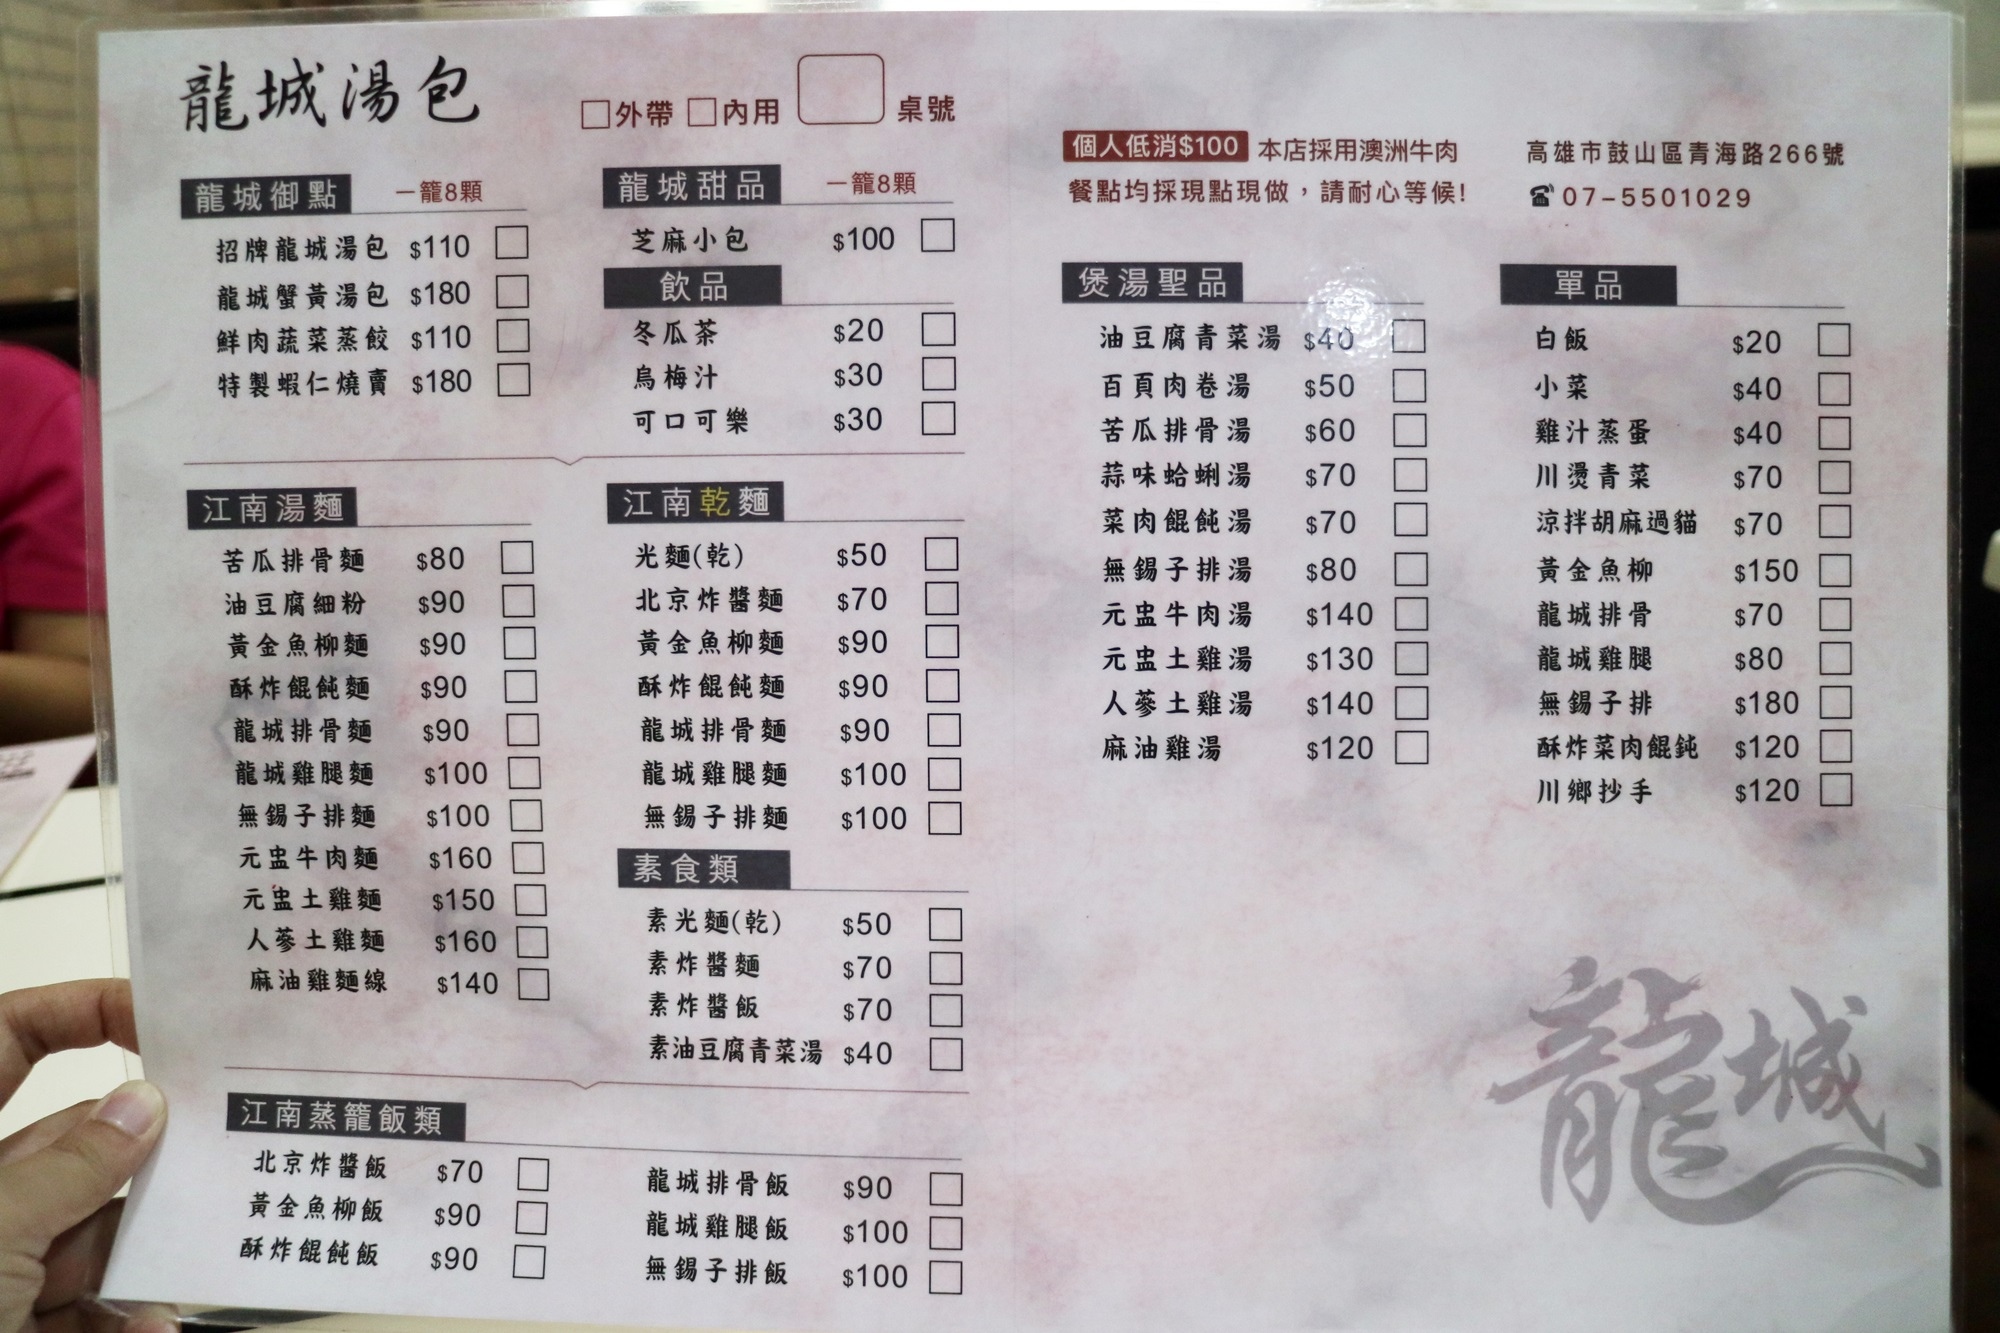 龍城湯包
□外帶 □內用 桌號
龍城御點 一籠8顆
招牌龍城湯包 $110
龍城蟹黃湯包 $180
鮮肉蔬菜蒸餃 $110
特製蝦仁燒賣 $180
龍城甜品 一籠8顆
芝麻小包 $100
飲品
冬瓜茶 $20
烏梅汁 $30
可口可樂 $30
江南湯麵
苦瓜排骨麵 $80
油豆腐細粉 $90
黃金魚柳麵 $90
酥炸餛飩麵 $90
龍城排骨麵 $90
龍城雞腿麵 $100
無錫子排麵 $100
元盅牛肉麵 $160
元盅土雞麵 $150
人蔘土雞麵 $160
麻油雞麵線 $140
江南乾麵
光麵(乾) $50
北京炸醬麵 $70
黃金魚柳麵 $90
酥炸餛飩麵 $90
龍城排骨麵 $90
龍城雞腿麵 $100
無錫子排麵 $100
素食類
素光麵(乾) $50
素炸醬麵 $70
素炸醬飯 $70
素油豆腐青菜湯 $40
江南蒸籠飯類
北京炸醬飯 $70
黃金魚柳飯 $90
酥炸餛飩飯 $90
龍城排骨飯 $90
龍城雞腿飯 $100
無錫子排飯 $100
個人低消$100 本店採用澳洲牛肉
餐點均採現點現做，請耐心等候!
高雄市鼓山區青海路266號
☎07-5501029
煲湯聖品
油豆腐青菜湯 $40
百頁肉卷湯 $50
苦瓜排骨湯 $60
蒜味蛤蜊湯 $70
菜肉餛飩湯 $70
無錫子排湯 $80
元盅牛肉湯 $140
元盅土雞湯 $130
人蔘土雞湯 $140
麻油雞湯 $120
單品
白飯 $20
小菜 $40
雞汁蒸蛋 $40
川燙青菜 $70
涼拌胡麻過貓 $70
黃金魚柳 $150
龍城排骨 $70
龍城雞腿 $80
無錫子排 $180
酥炸菜肉餛飩 $120
川鄉抄手 $120
龍城